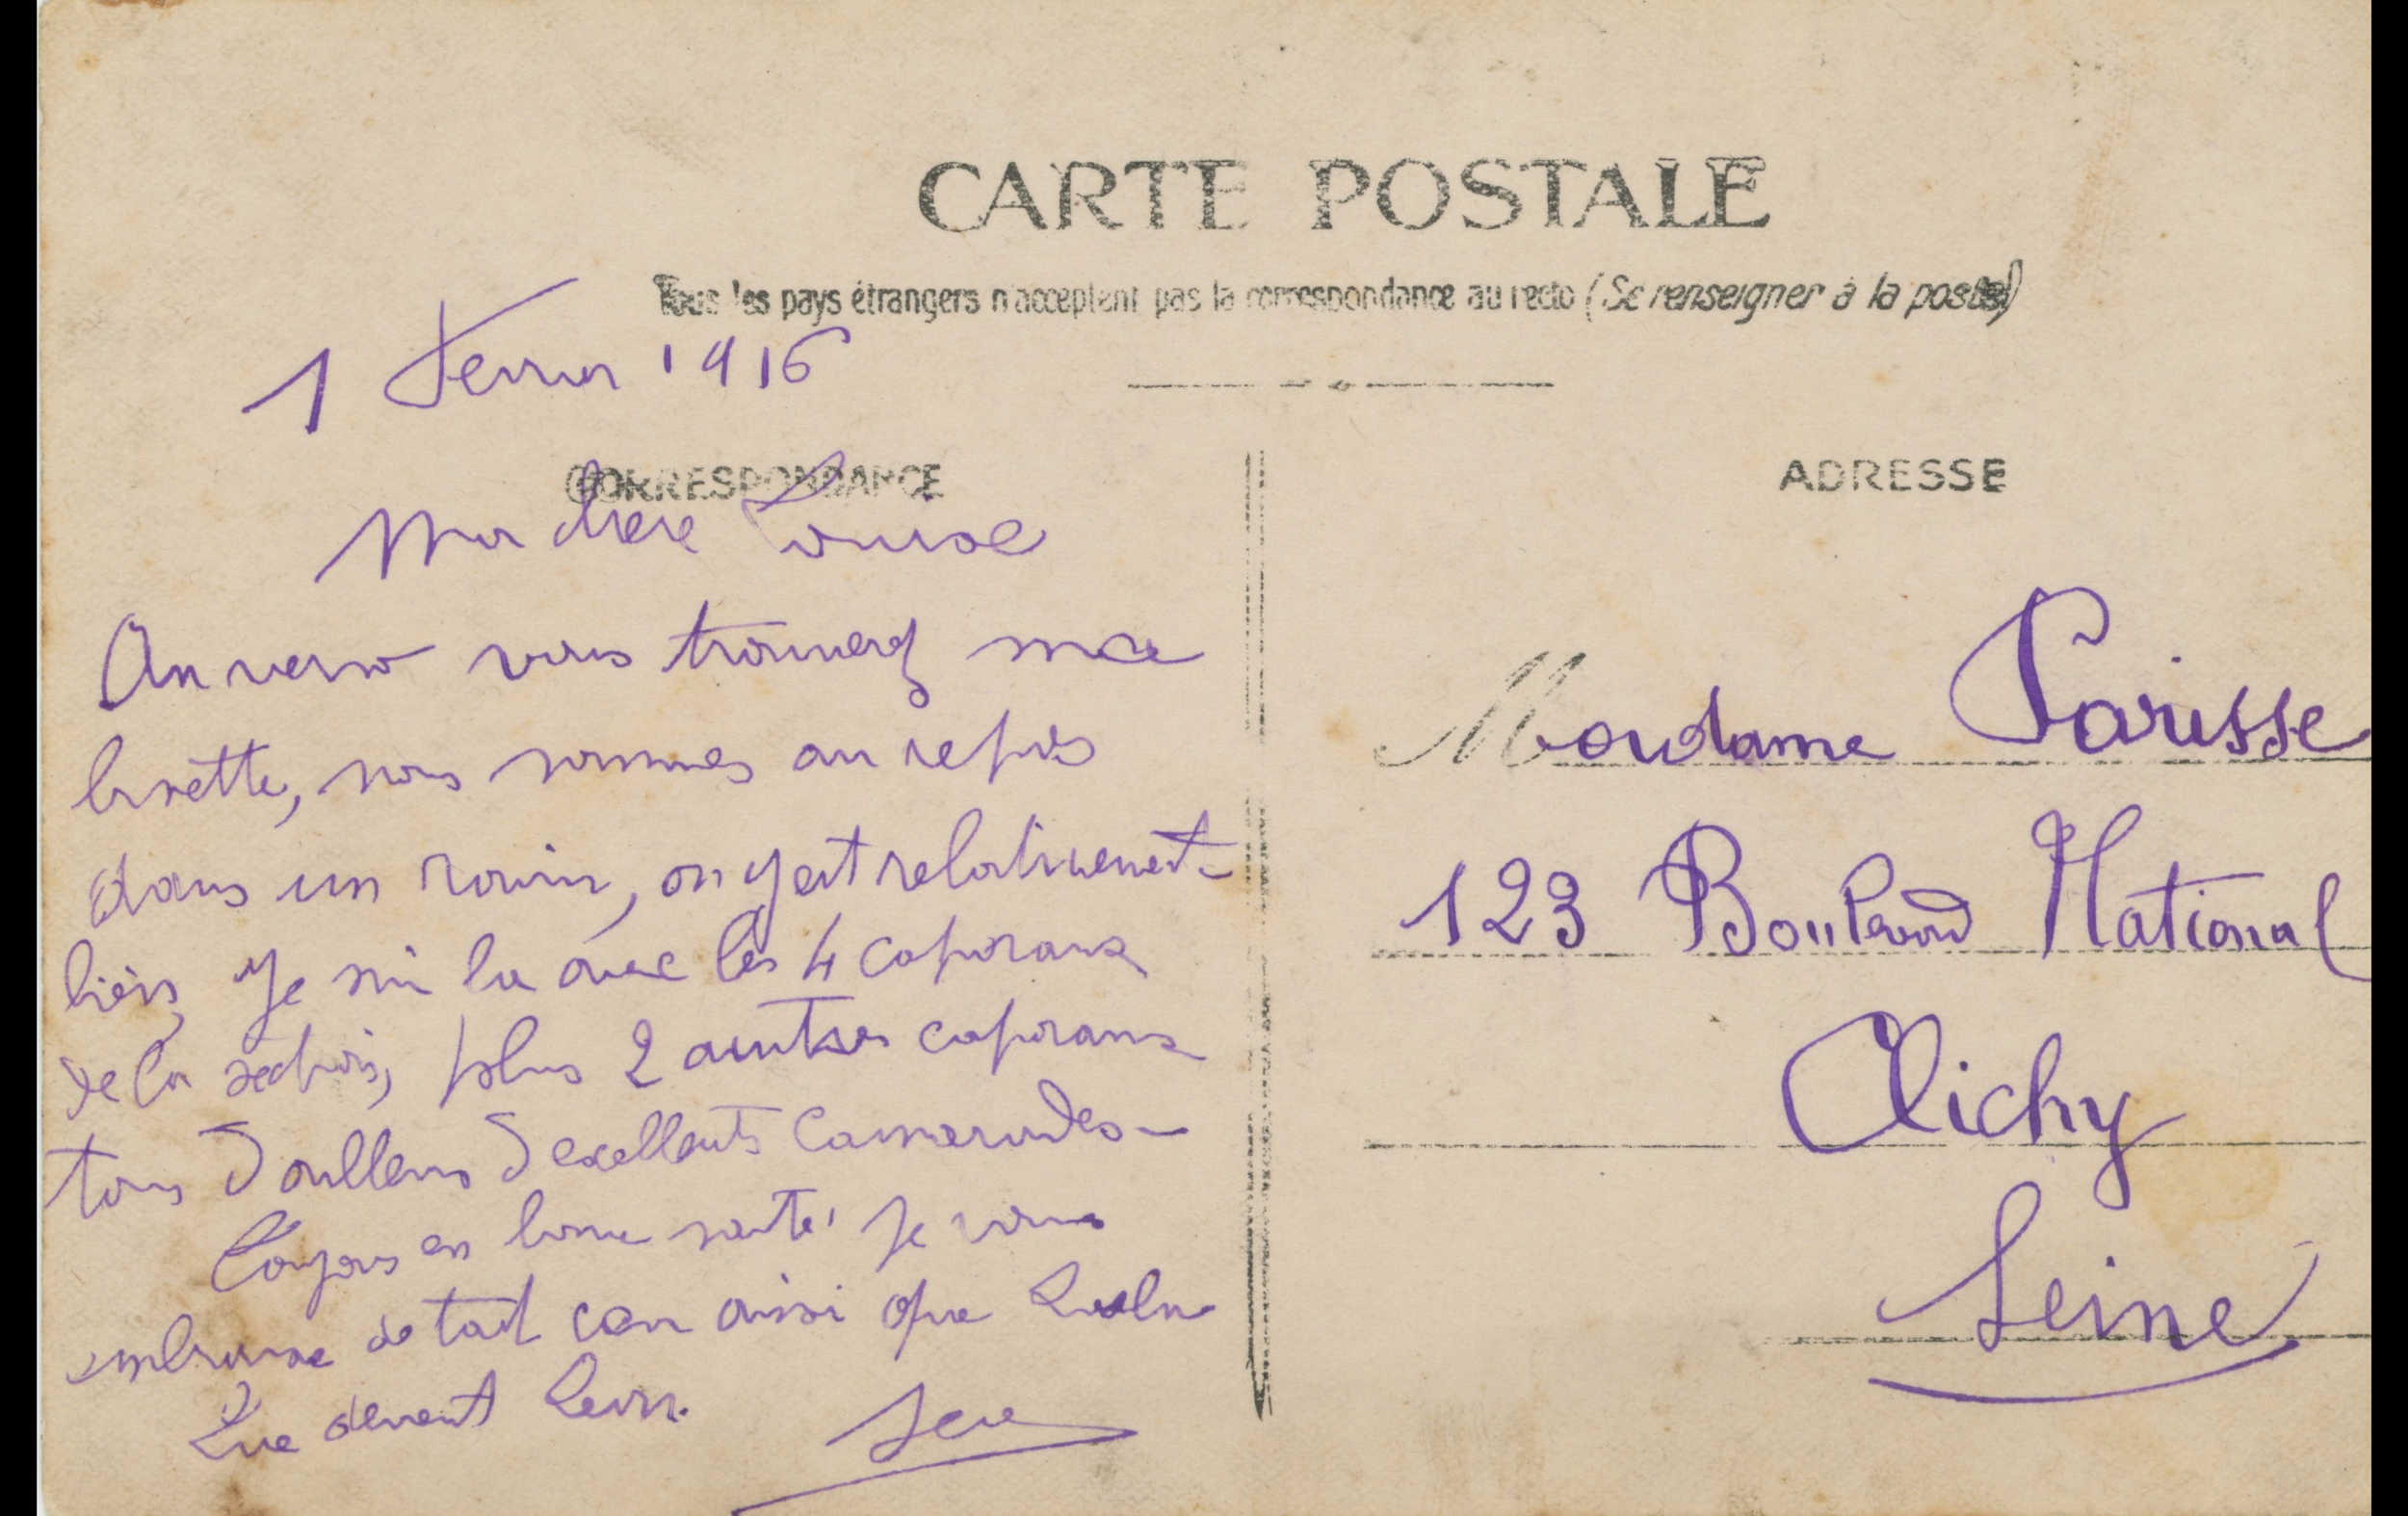 CARTE POSTALE
Tous les pays étrangers n'acceptent pas la correspondance au recto (Se renseigner à la poste)
1 Fevrier 1916
CORRESPONDANCE
Ma chere Louise
Au verso vous trouverez ma
binette, nous sommes au repos
dans un ravin, on y est relativement
bien, Je sui la avec les 4 caporaux
de la section, plus 2 autres caporaux
tous d'aillens d'exellents Camarades
Toujours en bonne santé, Je vous
embrasse de tout cœur ainsi que
Que devient Leon.
ADRESSE
Madame Parisse
123 Boulevard National
Clichy
Seine